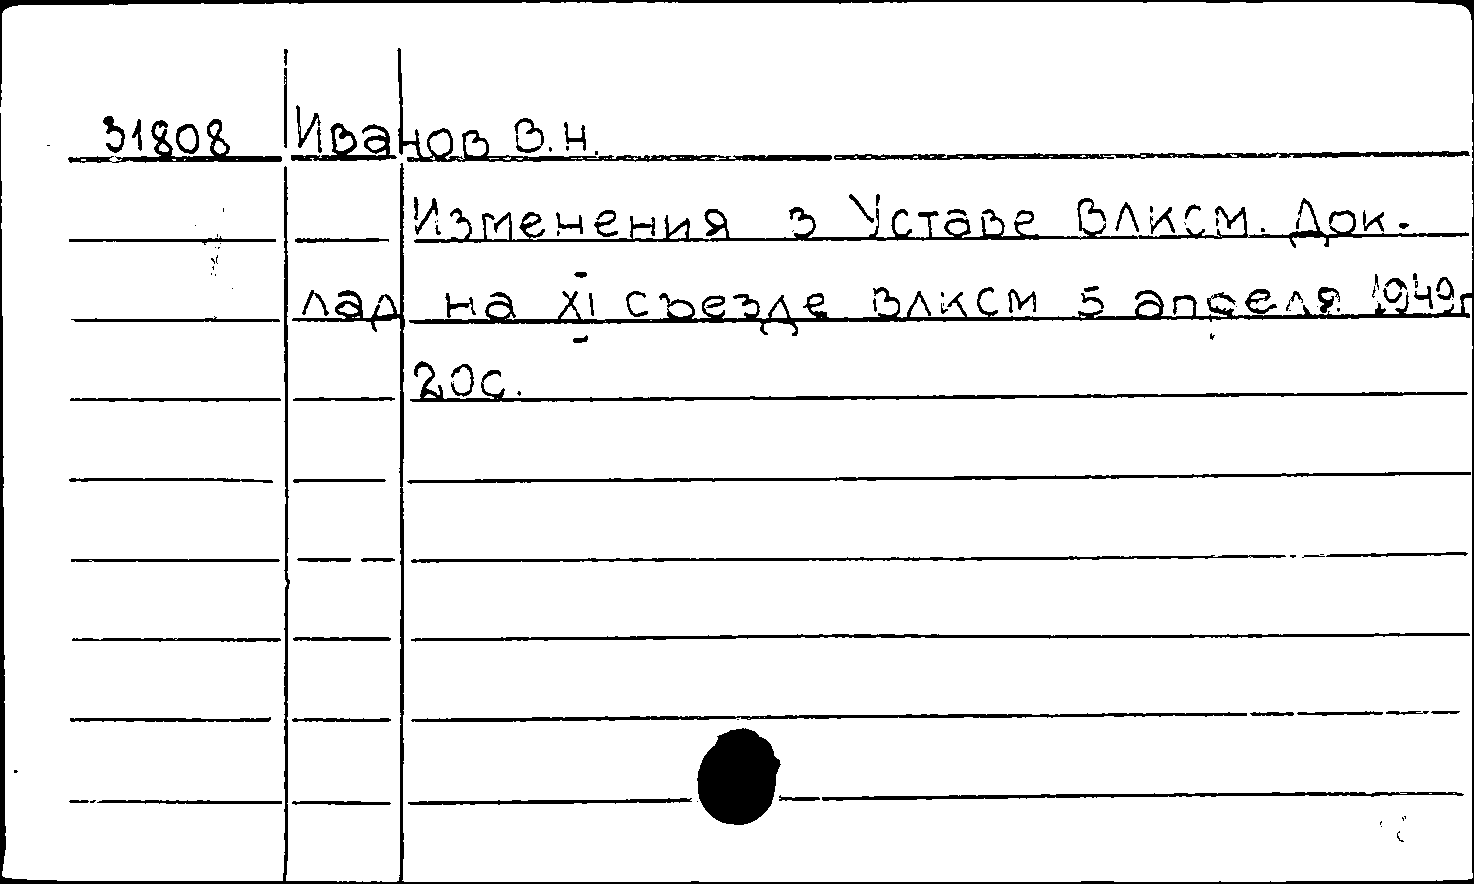 31808 Иванов В.Н.
Изменения в Уставе ВЛКСМ. Док.
лад на XI съезде ВЛКСМ 5 апреля 1949г
20с.